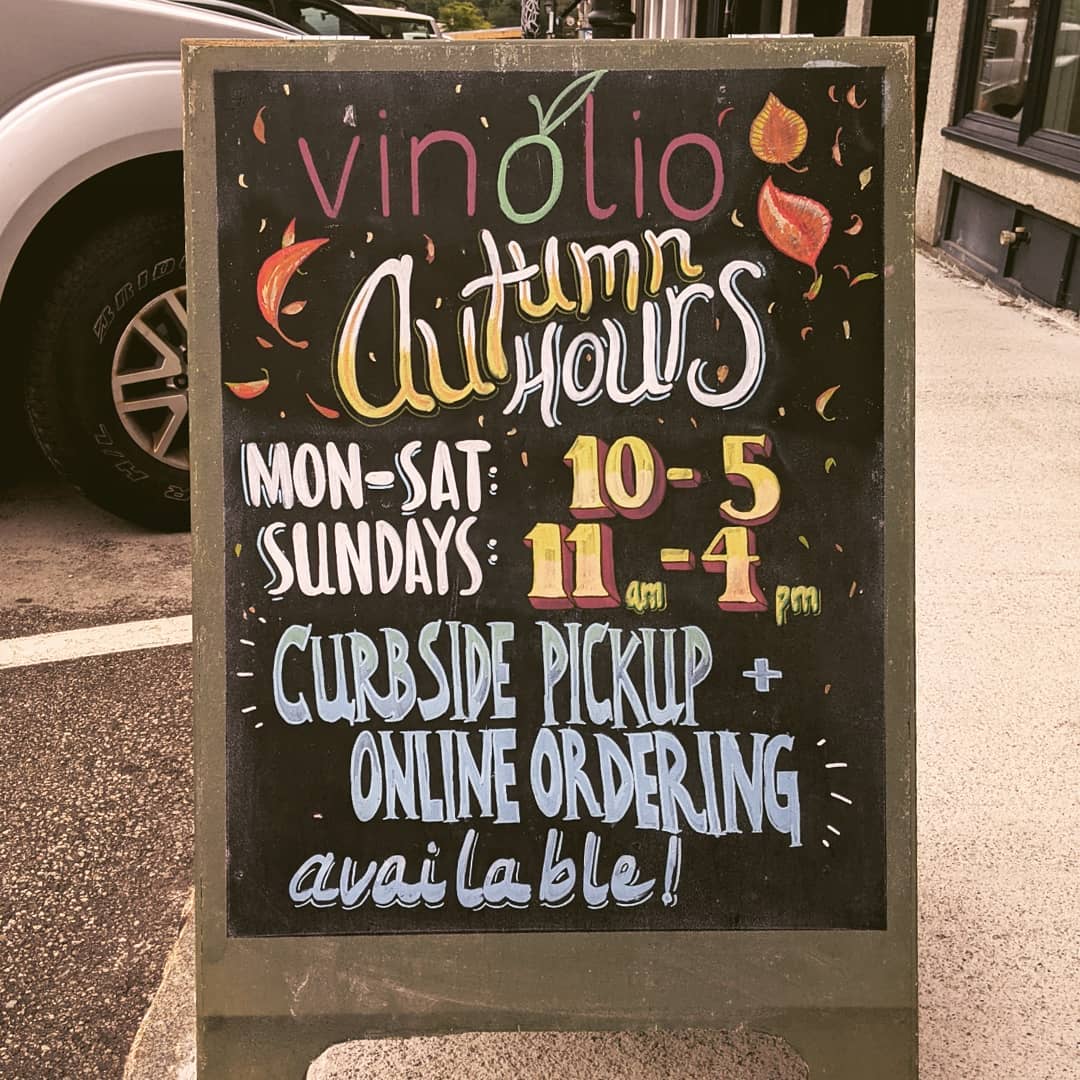 vinolio
Autumn
Hours
MON-SAT: 10-5
SUNDAYS: 11am-4pm
CURBSIDE PICKUP +
ONLINE ORDERING
available!